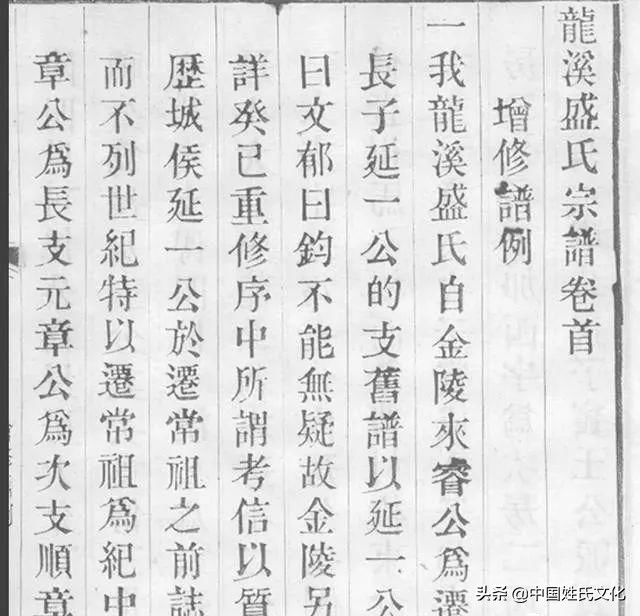 龍溪盛氏宗譜卷首
增修譜例
一我龍溪盛氏自金陵來睿公爲遷
長子延一公的支舊譜以延一公
曰文郁曰鈞不能無疑故金陵另
詳癸已重修序中所謂考信以質
歷城侯延一公於遷常祖之前誌
而不列世紀特以遷常祖爲紀中
章公爲長支元章公爲次支順章
头条@中国姓氏文化